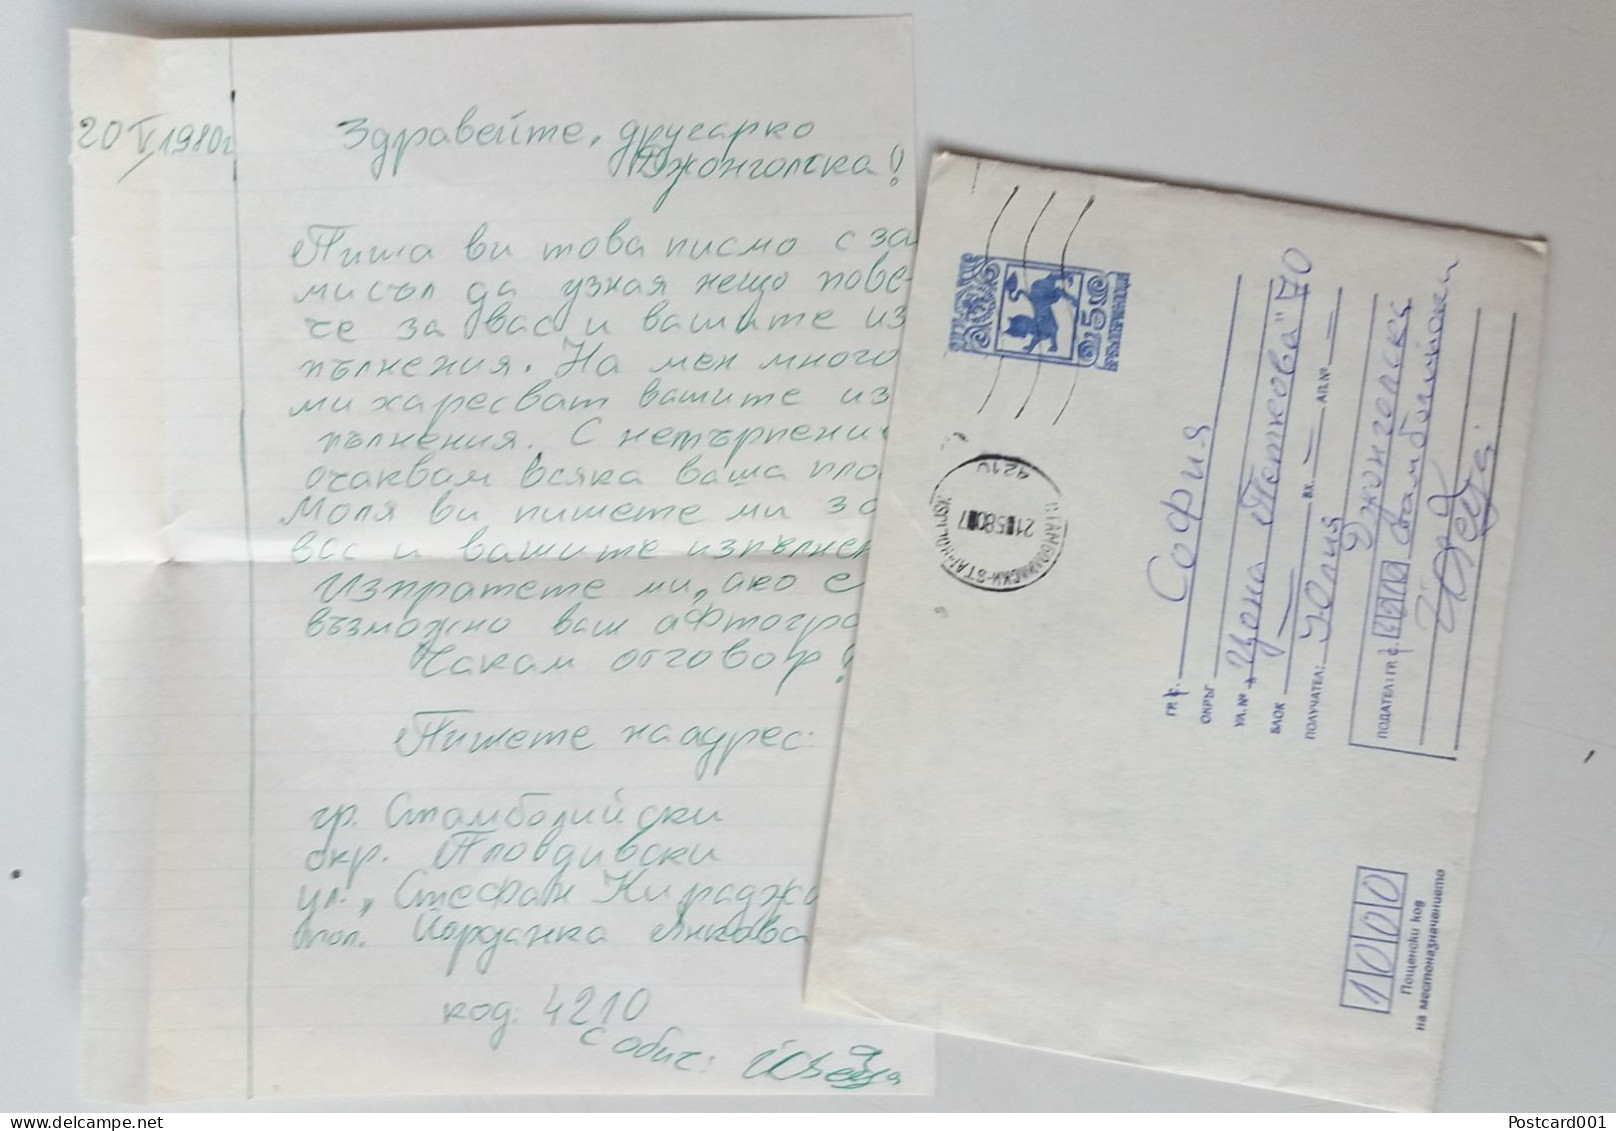 20 V 1980г
Здравейте, другарко
Джонголска!
Пиша ви това писмо с за
мисъл да узная нещо пове-
че за вас и вашите из
пълнения. На мен много
ми харесват вашите из
пълнения. С нетърпени
очаквам всяка ваша пло
Моля ви пишете ми за
вас и вашите изпълнен
Изпратете ми, ако е
възможно ваш афтогра
Чакам отговор!
Пишете на адрес:
гр. Стамболийски
окр. Пловдивски
ул. „Стефан Караджа
пол. Йорданка Янкова
код: 4210
С обич:
4210
21 5 80 07
ГР. С. София
ОКРЪГ
УЛ. № „Цона Петкова" 70
БЛОК ВХ. АП. №
ПОЛУЧАТЕЛ: Юлия
Джонголска
ПОДАТЕЛ: ГР. С. 4210 Стамболийски
1000
Пощенски код
на местоназначението
Postcard001